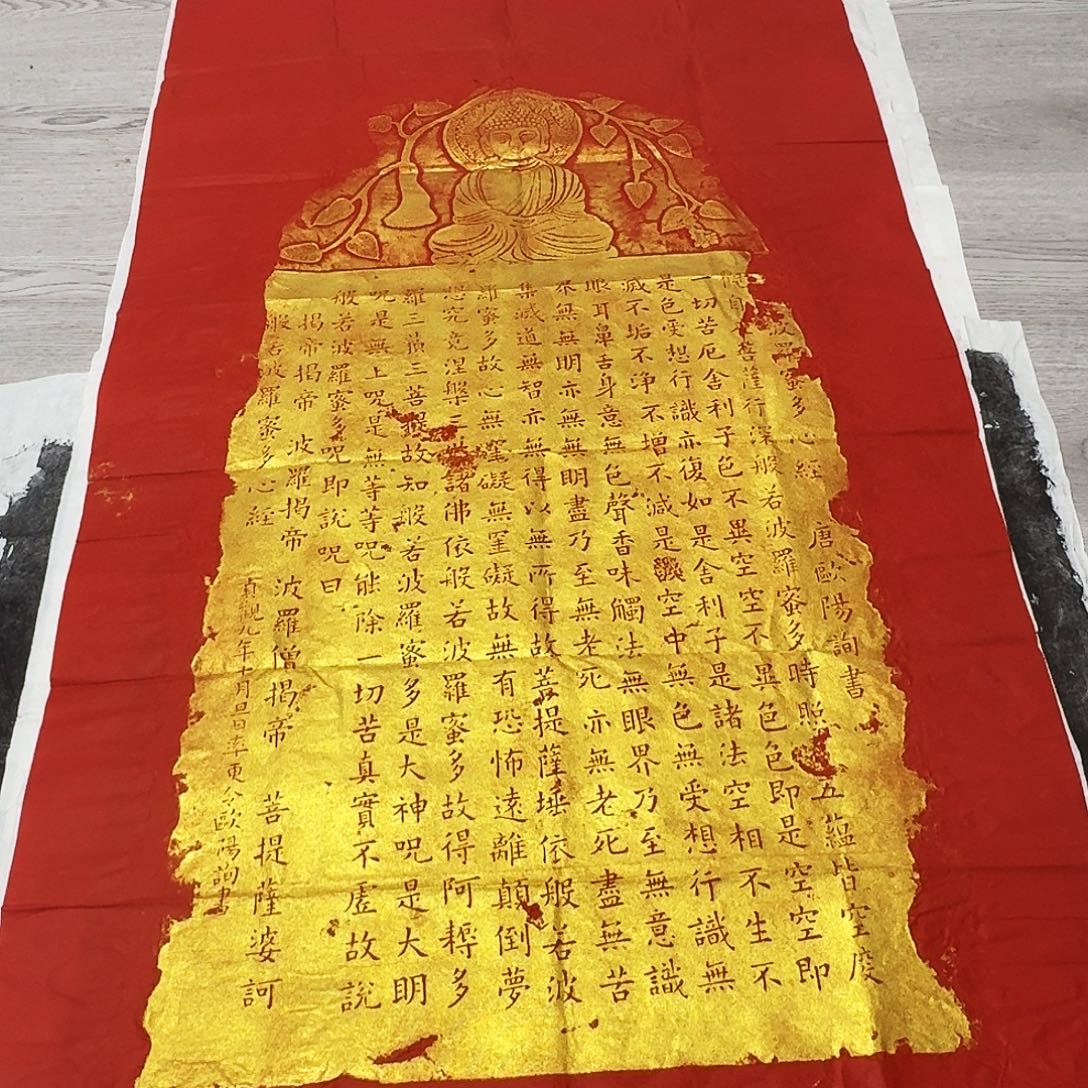 波羅蜜多心經 唐歐陽詢書
自菩薩行深般若波羅蜜多時照五蘊皆空度
一切苦厄舍利子色不異空空不異色色即是空空即
是色受想行識亦復如是舍利子是諸法空相不生不
滅不垢不淨不增不減是空中無色無受想行識無
眼耳鼻舌身意無色聲香味觸法無眼界乃至無意識
界無無明亦無無明盡乃至無老死亦無老死盡無苦
集滅道無智亦無得以無所得故菩提薩埵依般若波
羅蜜多故心無罣礙無罣礙故無有恐怖遠離顛倒夢
想究竟涅槃三世諸佛依般若波羅蜜多故得阿耨多
羅三藐三菩提故知般若波羅蜜多是大神呪是大明
呪是無上呪是無等等呪能除一切苦真實不虛故說
般若波羅蜜多呪即說呪曰
揭帝揭帝 波羅揭帝 波羅僧揭帝 菩提薩婆訶
般若波羅蜜多心經
貞觀九年十月旦日率更令歐陽詢書